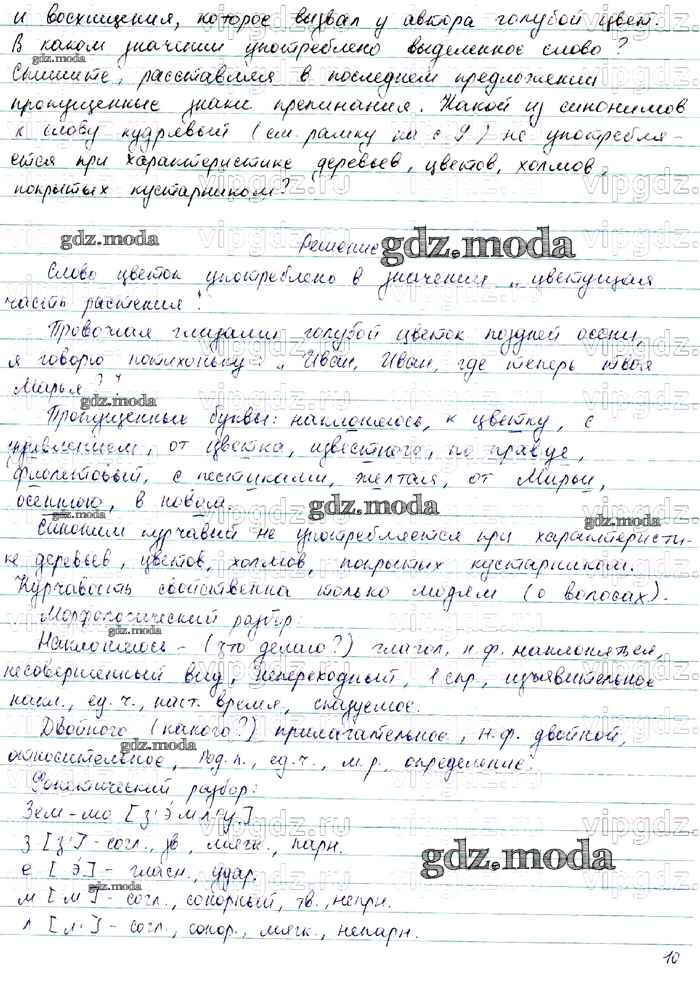 и восхищения, которое вызвал у автора голубой цвет.
В каком значении употреблено выделенное слово?
Спишите, расставляя в последнем предложении
пропущенные знаки препинания. Какой из синонимов
к слову кудрявый (см. рамку на с 9) не употребля-
ется при характеристике деревьев, цветов, холмов,
покрытых кустарником?
gdz.moda Решение gdz.moda
Слово цветок употреблено в значении „цветущая
часть растения".
Провожая глазами голубой цветок поздней осени,
я говорю потихоньку: „Иван, Иван, где теперь твоя
Марья?"
gdz.moda
Пропущенные буквы: наклоняюсь, к цветку, с
, от цветка, известного, по правде,
фиолетовый, с пестиками, желтая, от Марьи,
осеннюю, в новом.
gdz.moda gdz.moda gdz.moda
Синоним курчавый не употребляется при характеристи-
ке деревьев, цветов, холмов, покрытых кустарником.
Курчавость свойственна только людям (о волосах).
Морфологический разбор:
gdz.moda
Наклоняюсь - (что делаю?) глагол, н.ф. наклоняться,
несовершенный вид, непереходный, 1 спр., изъявительное
накл., ед. ч., наст. время, сказуемое.
Двойного (какого?) прилагательное, н.ф. двойной,
относительное, Род.п., ед.ч., м.р., определение.
gdz.moda
Фонетический разбор:
Зем-лю [з'эмл'у]
з [з'] - согл., зв, мягк., парн.
е [э] - гласн., удар.
gdz.moda
м [м] - согл., сонорный, тв., непрн.
л [л'] - согл., сонор., мягк., непарн.
10